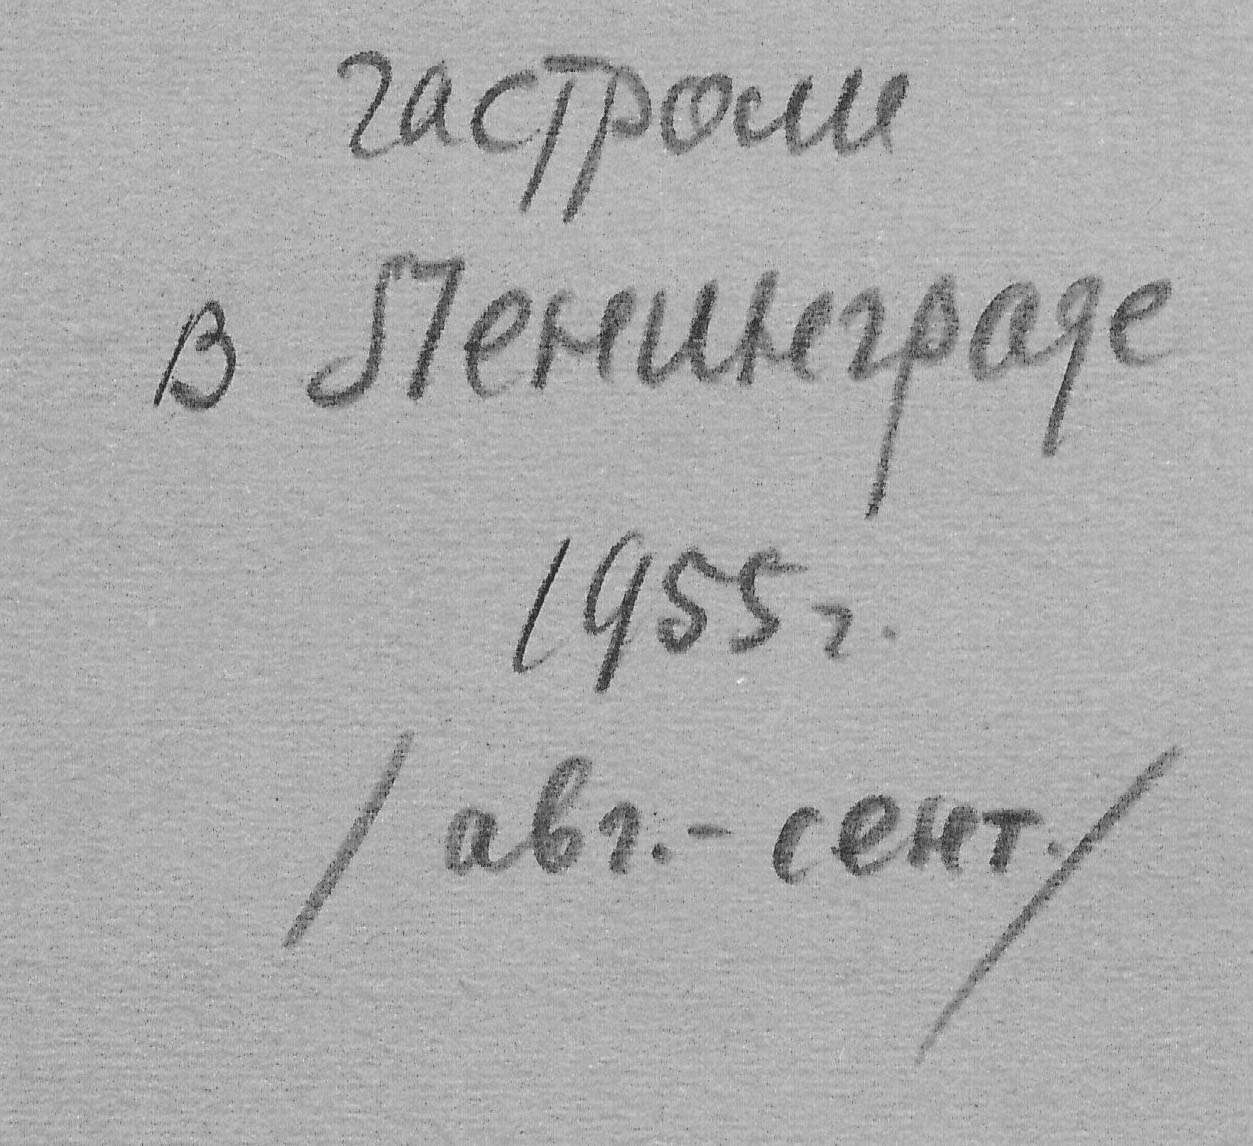 гастроли
в Ленинграде
1955 г.
/ авг.- сент./